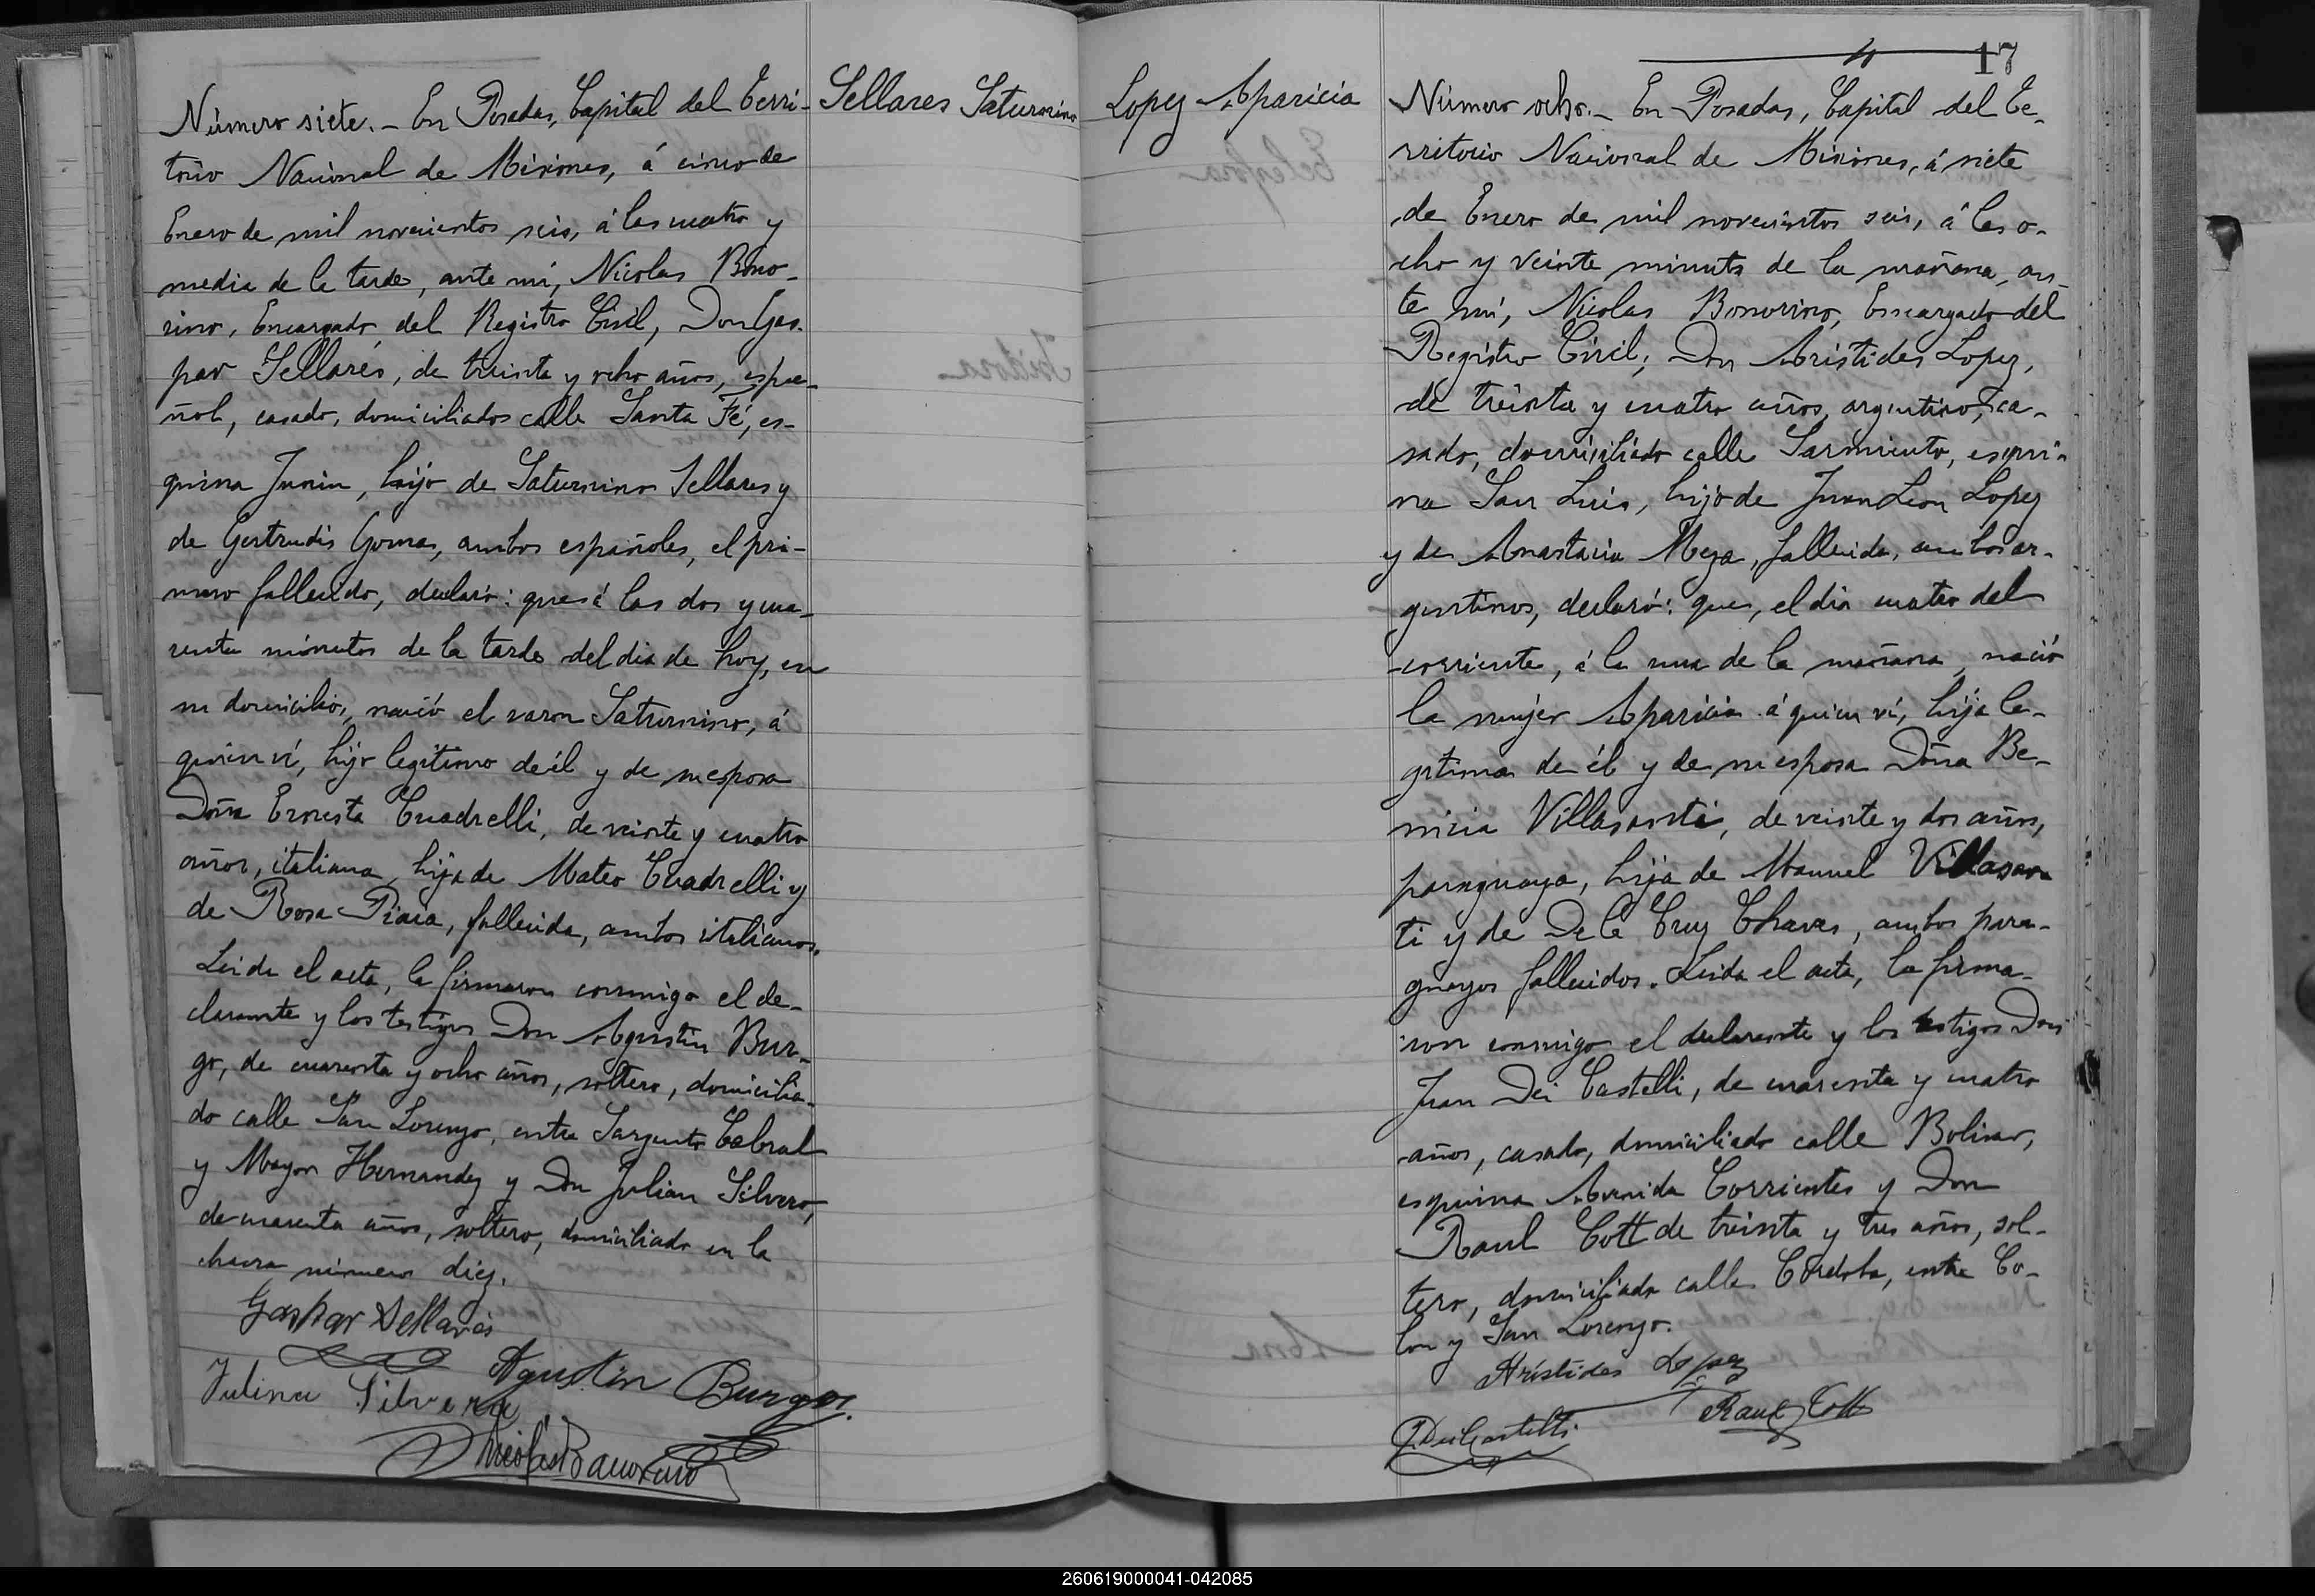 Número siete. – En Posadas, Capital del Terri-
torio Nacional de Misiones, á cinco de
Enero de mil novecientos seis, á las cuatro y
media de la tarde, ante mí, Nicolas Bono-
rino, Encargado del Registro Civil, Don Gas-
par Sellarés, de treinta y ocho años, espa-
ñol, casado, domiciliados calle Santa Fé, es-
quina Junin, hijo de Saturnino Sellares y
de Gertrudis Gomas, ambos españoles, el pri-
mero fallecido, declaró: que á las dos y cua-
renta minutos de la tarde del dia de hoy, en
su domicilio, nació el varon Saturnino, á
quien ví, hijo legitimo de él y de su esposa
Doña Ernesta Cuadrelli, de veinte y cuatro
años, italiana, hija de Mateo Cuadrelli y
de Rosa, fallecida, ambos italianos.
Leida el acta, la firmaron conmigo el de-
clarante y los testigos Don Agustin Bur-
go, de cuarenta y ocho años, soltero, domicilia-
do calle San Lorenzo, entre Sargento Cabral
y Mayor Hernandez y Don Julian Silvero,
de cuarenta años, soltero, domiciliado en la
chacra número diez.
Gaspar Sellarés
Agustin Burgos
Julian Silvera
Nicolas Bonorino
Sellares Saturnino
17
Lopez Aparicia
Número ocho. – En Posadas, Capital del Te-
rritorio Nacional de Misiones, á siete
de Enero de mil novecientos seis, á las o-
cho y veinte minutos de la mañana, an-
te mí, Nicolas Bonorino, Encargado del
Registro Civil, Don Aristides Lopez,
de treinta y cuatro años, argentino, ca-
sado, domiciliado calle Sarmiento, esqui-
na San Luis, hijo de Juan Leon Lopez
y de Anastacia Meza, fallecida, ambos ar-
gentinos, declaró: que, el dia cuatro del
corriente, á la una de la mañana, nació
la mujer Aparicia á quien ví, hija le-
gitima de él y de su esposa Doña Be-
nicia Villasanti, de veinte y dos años,
paraguaya, hija de Manuel Villasan-
ti y de De la Cruz Chaves, ambos para-
guayos fallecidos. Leida el acta, la firma-
ron conmigo el declarante y los testigos Don
Juan Dei Castelli, de cuarenta y cuatro
años, casado, domiciliado calle Bolivar,
esquina Avenida Corrientes y Don
Raul Cott de treinta y tres años, sol-
tero, domiciliado calle Córdoba, entre Co-
lon y San Lorenzo.
Aristides Lopez
Raul Cott
J. Dei Castelli
260619000041-042085